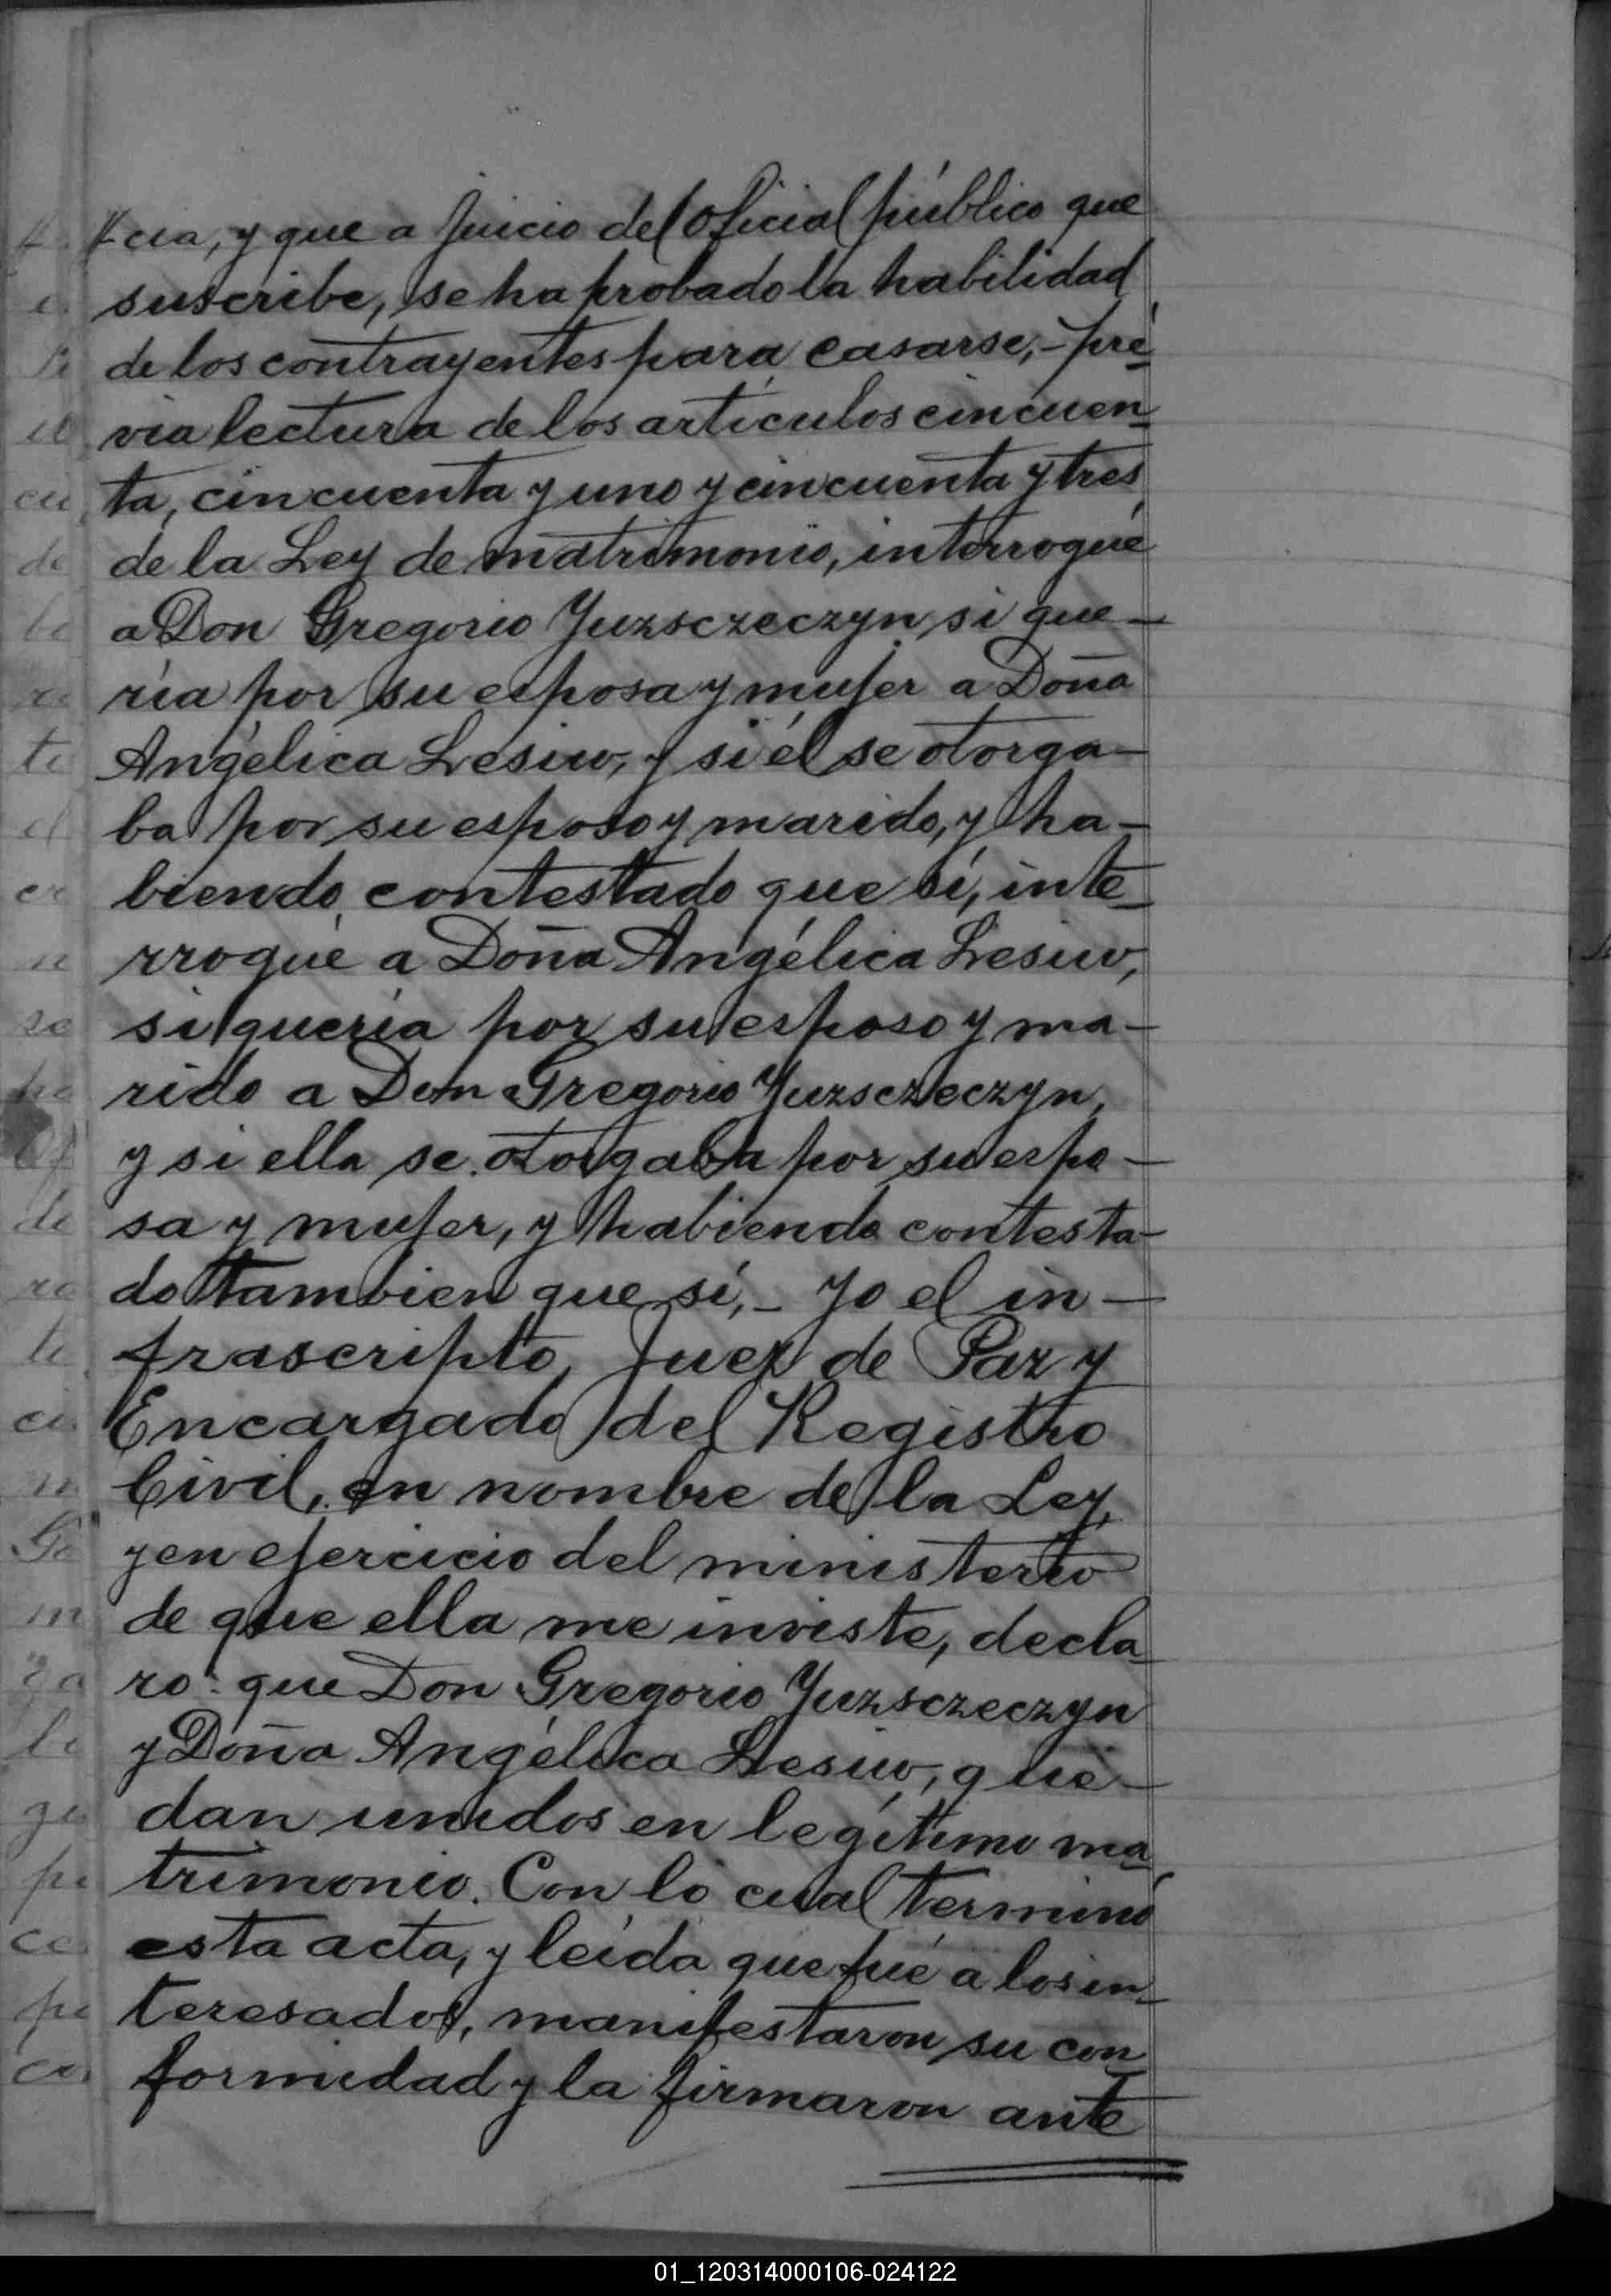 cia, y que a juicio del oficial público que
suscribe, se ha probado la habilidad
de los contrayentes para casarse,- pré-
via lectura de los artículos cincuen-
ta, cincuenta y uno y cincuenta y tres
de la Ley de matrimonio, interrogué
a Don Gregorio Yuzsczeczyn, si que-
ría por su esposa y mujer a Doña
Angélica Lesiw, y si él se otorga-
ba por su esposo y marido, y ha-
biendo contestado que sí, inte-
rrogué a Doña Angélica Lesiw,
si quería por su esposo y ma-
rido a Don Gregorio Yuzsczeczyn,
y si ella se otorgaba por su espo-
sa y mujer, y habiendo contesta-
do tambien que sí,- Yo el in-
frascripto, Juez de Paz y
Encargado del Registro
Civil, en nombre de la Ley,
y en ejercicio del ministerio
de que ella me inviste, decla-
ro: que Don Gregorio Yuzsczeczyn
y Doña Angélica Lesiw, que-
dan unidos en legítimo ma-
trimonio. Con lo cual terminó
esta acta, y leída que fué a los in-
teresados, manifestaron su con-
formidad y la firmaron ante
01_120314000106-024122